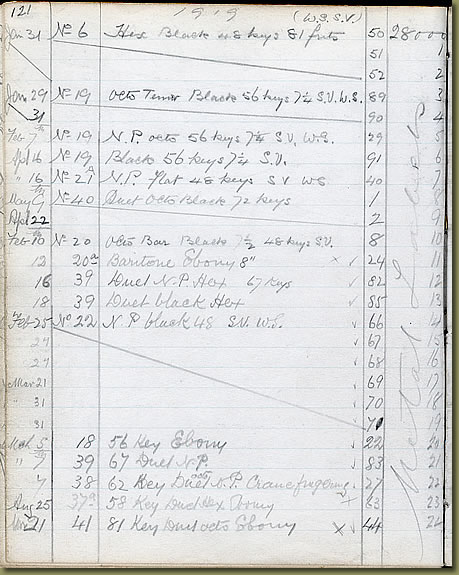 121 1919 (W.S.V.)
Jan 31 No 6 Hex Black 48 keys 81 frets 50 28000
51 1
52 2
Jan 29 No 19 Octo Tenor Black 56 keys 7¼ S.V. W.S. 89 3
31 90 4
Feb 7th No 19 N.P. octo 56 keys 7¼ S.V. W.S. 29 5
Apl 16 No 19 Black 56 keys 7¼ S.V. 91 6
" 16 No 21A N.P. flat 48 keys S V W S 40 7
May 9th No 40 Duet Octo Black 72 keys 1 8
Apl 22 2 9
Feb 10 No 20 Octo Bar Black 7½ 48 keys S.V. 8 10
12 20a Baritone Ebony 8" × ✓ 24 11
16 39 Duet N.P. Hex 67 Keys ✓ 82 12
18 39 Duet black Hex ✓ 85 13
Feb 25 No 22 N.P black 48 S.V. W.S. ✓ 66 14
27 ✓ 67 15
27 ✓ 68 16
Mar 21 ✓ 69 17
" 31 ✓ 70 18
31 71 19
Mch 5 18 56 Key Ebony ✓ 22 20
" 7 39 67 Duet N.P. ✓ 83 21
7 38 62 Key Duet octo N.P. Crane fingering ✓ 27 22
Aug 25 37a 58 Key Duet Hex Ebony 63 23
21 41 81 Key Duet octo Ebony × ✓ 44 24
Metal